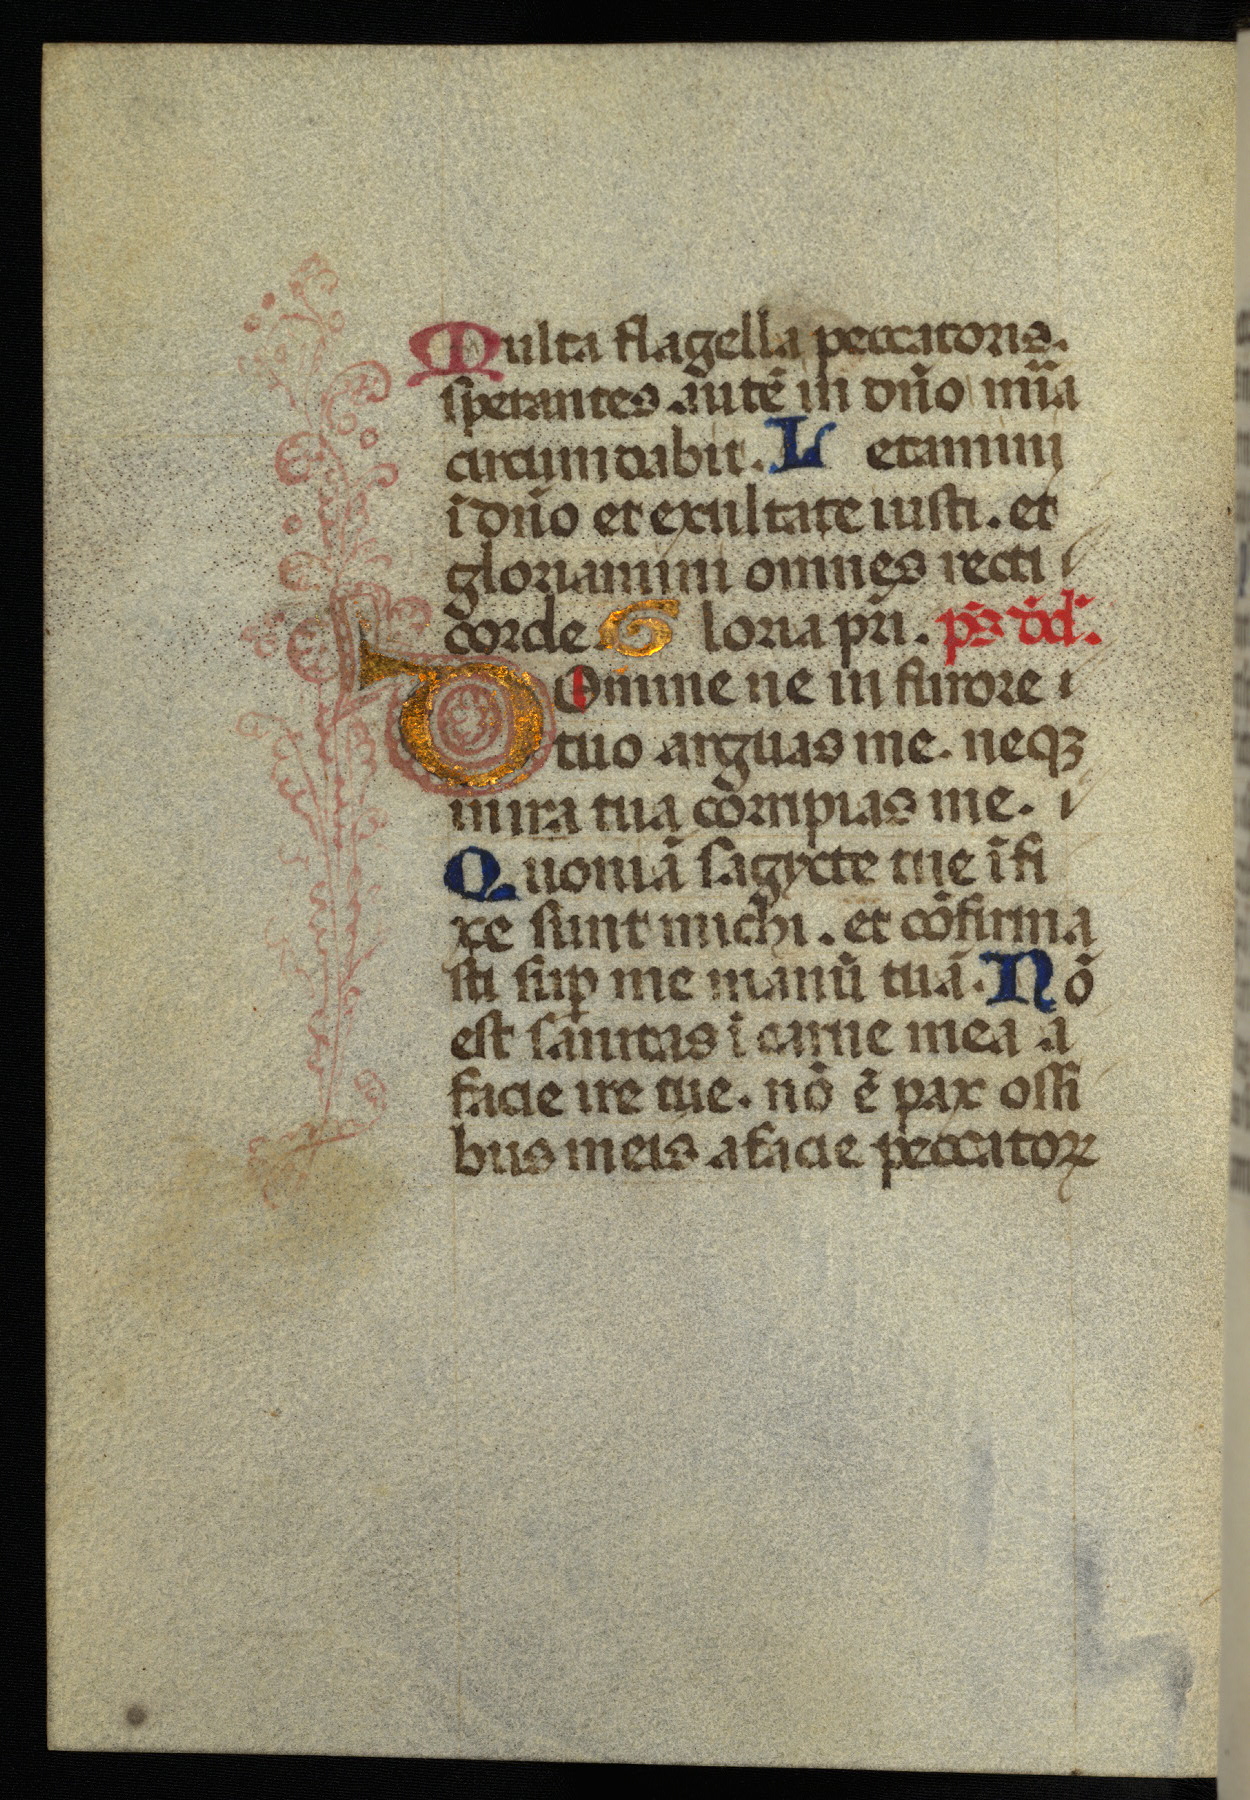 Multa flagella peccatoris.
sperantes autē in dn̄o mīa
circumdabit. Letamini
ī dn̄o et exultate iusti. et
gloriamini omnes recti
corde Gloria pr̄i. ps̄ dd̄.
Domine ne in furore
tuo arguas me. neqꝫ
in ira tua cōrripias me.
Quoniā sagycte tue īfi
xe sunt michi. et cōfirma
sti suꝑ me manū tuā. Nō
est sanitas ī carne mea a
facie ire tue. nō ē pax ossi
bus meis a facie peccatoꝝ